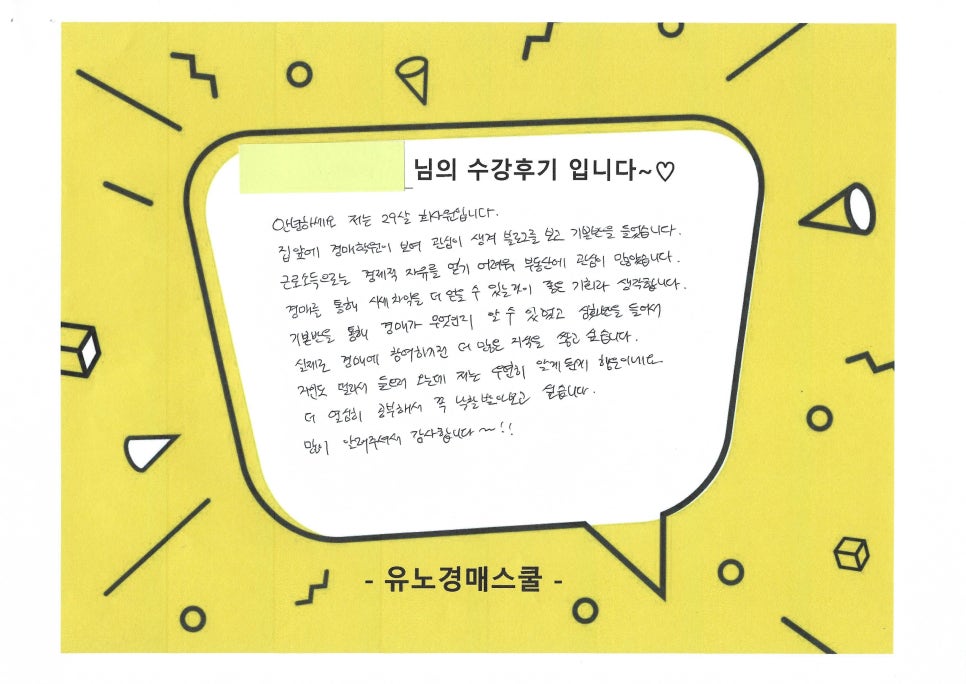 님의 수강후기 입니다~♡
안녕하세요 저는 29살 회사원입니다.
집앞에 경매학원이 보여 관심이 생겨 블로그를 보고 기본반을 들었습니다.
근로소득으로는 경제적 자유를 얻기 어려워 부동산에 관심이 많았습니다.
경매를 통해 시세차익을 더 얻을 수 있는것이 좋은 기회라 생각합니다.
기본반을 통해 경매가 무엇인지 알 수 있었고 심화반을 들어서
실제로 경매에 참여하기전 더 많은 지식을 쌓고 싶습니다.
멀리서 들으러 오는데 저는 우연히 알게 된게 행운이네요
더 열심히 공부해서 꼭 낙찰받아보고 싶습니다.
많이 알려주셔서 감사합니다~!!
- 유노경매스쿨 -